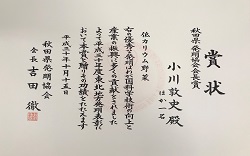 賞状
秋田県発明協会会長賞
小川敦史殿
ほか一名
低カリウム野菜
右の優秀な発明はわが国科学技術の向上と
産業の振興に多くの貢献をされました
よって平成三十年度東北地方発明表彰に
おいて本賞を贈りその功績をたたえます
平成三十年十月十五日
秋田県発明協会
会長 吉田 徹